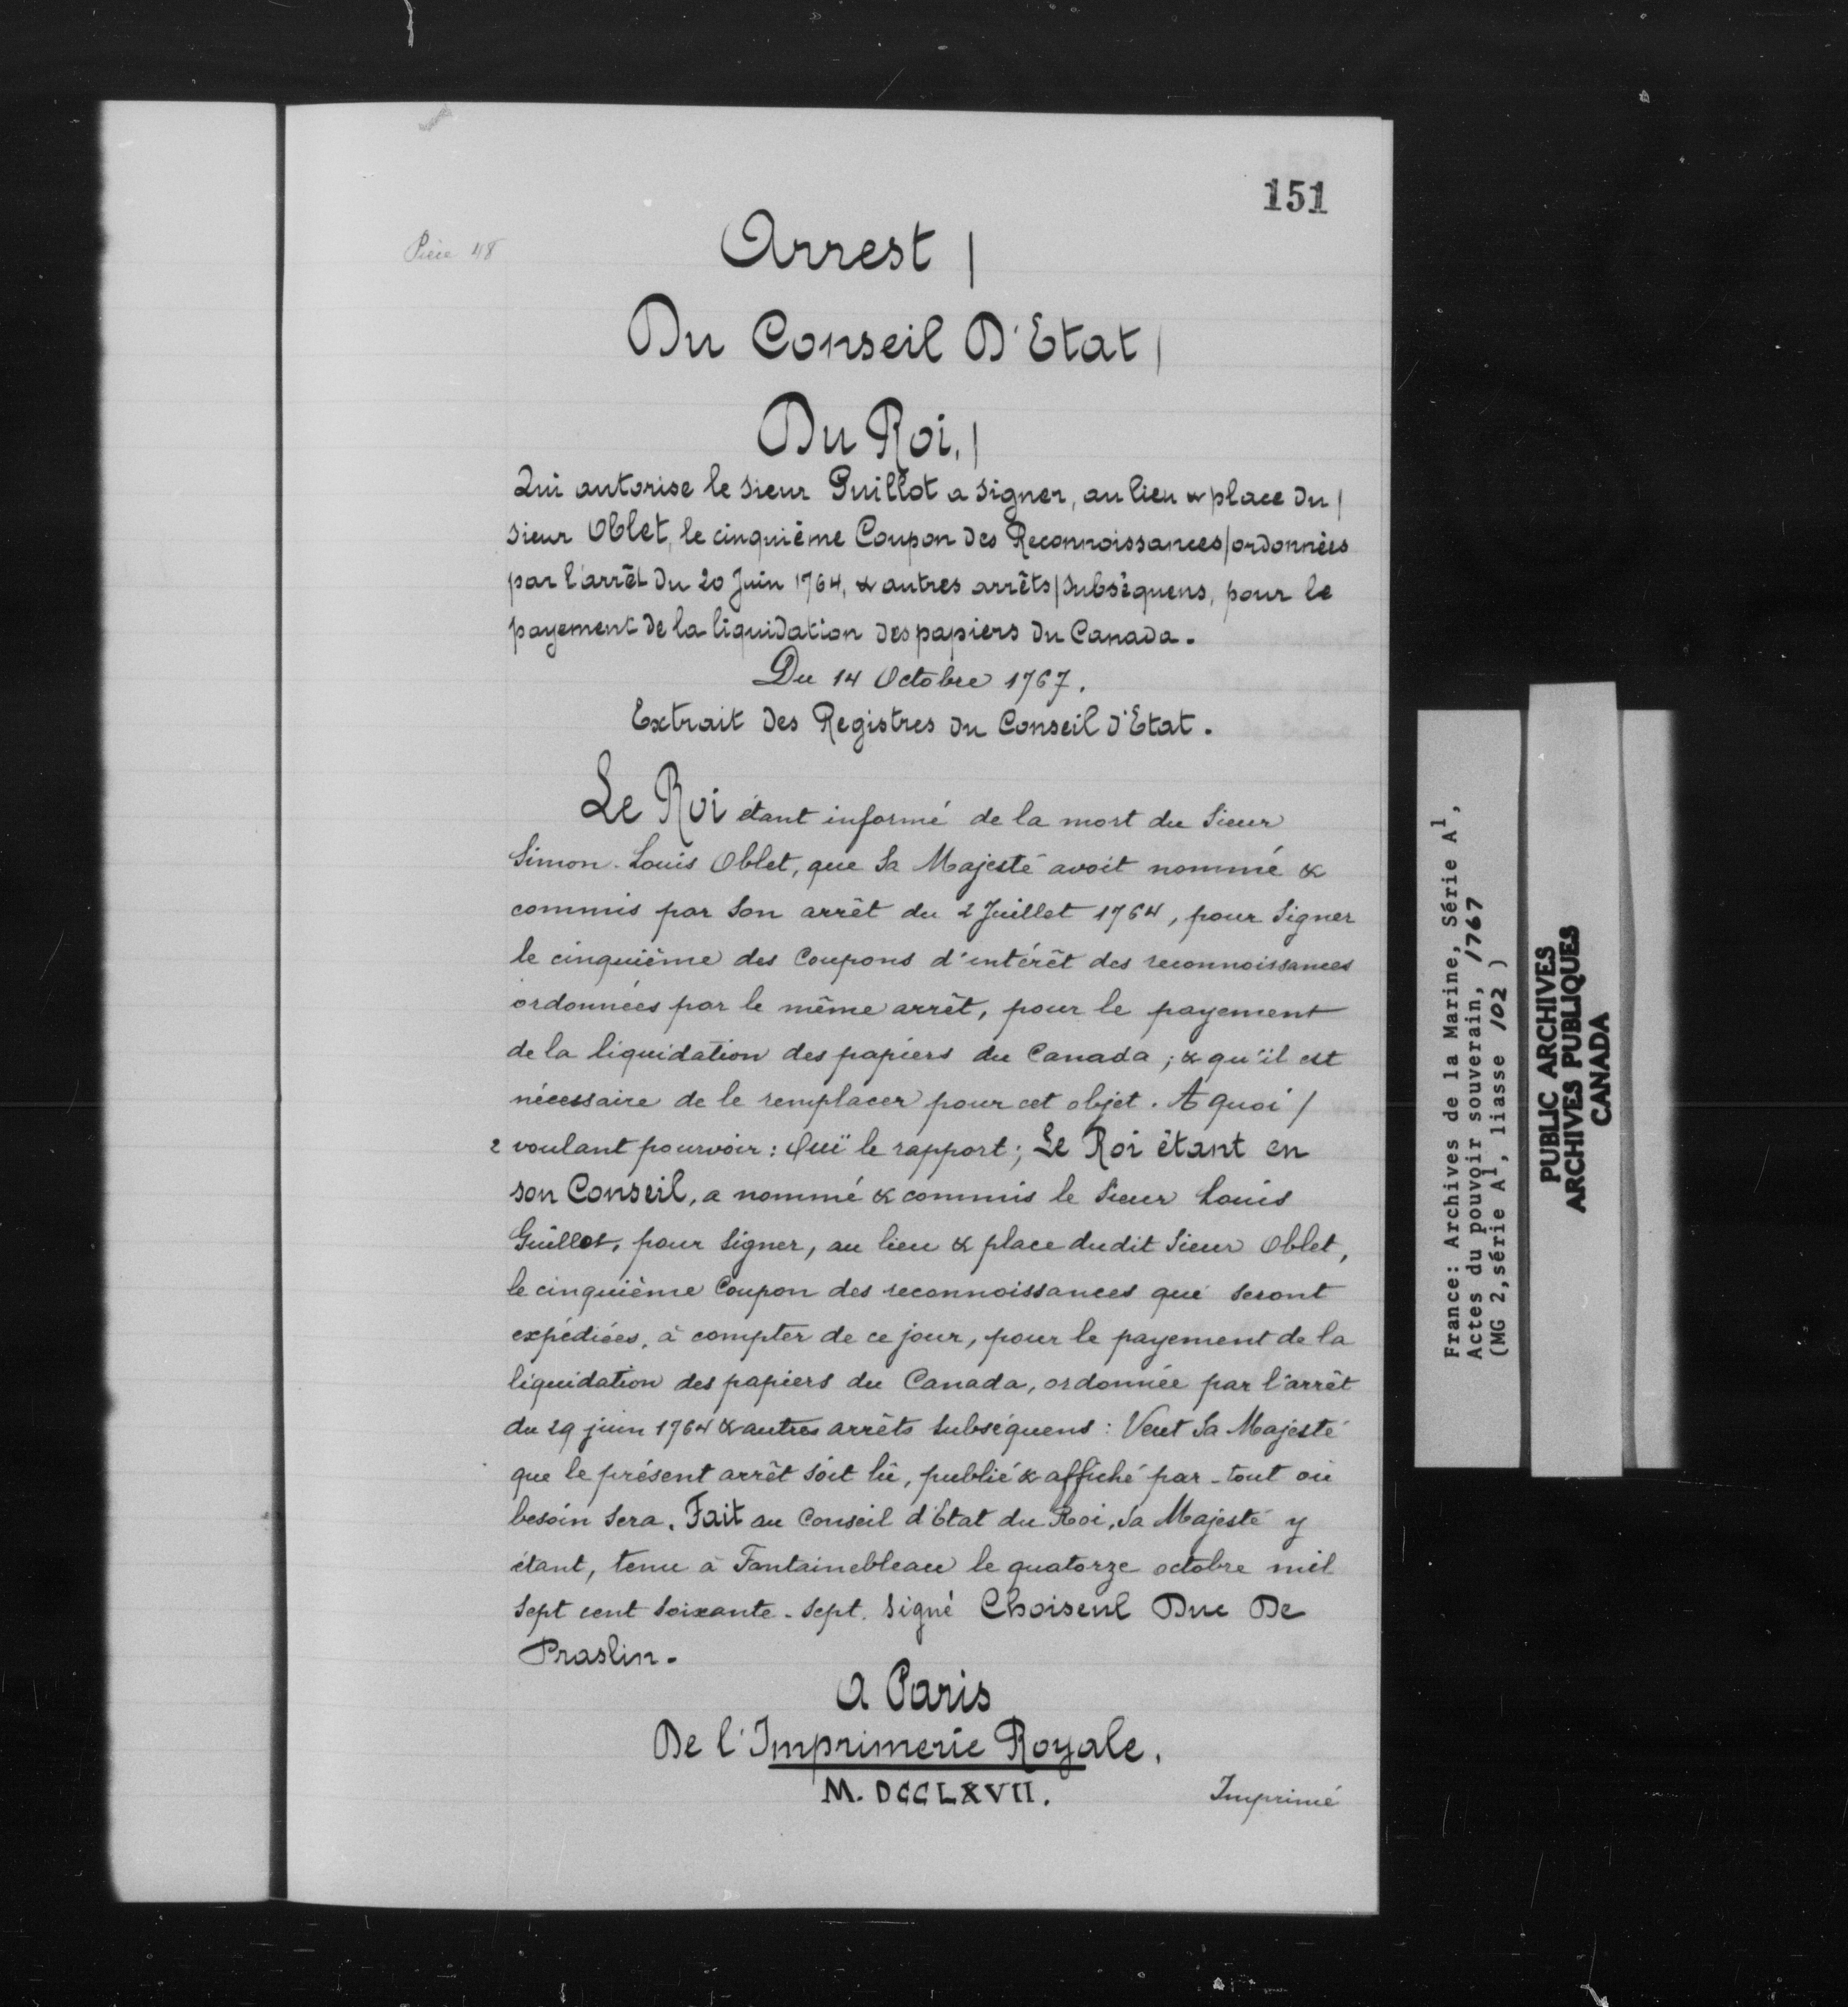 151
Pièce 48
Arrest |
Du Conseil D'Etat |
Du Roi. |
Qui autorise le Sieur Guillot a signer, au lieu & place du |
Sieur Oblet, le cinquiéme Coupon des Reconnoissances | ordonnées
par l'arrêt du 20 Juin 1764, & autres arrêts | subséquens, pour le
payement de la liquidation des papiers du Canada.
Du 14 Octobre 1767.
Extrait des Registres du Conseil d'Etat.
Le Roi étant informé de la mort du Sieur
Simon-Louis Oblet, que Sa Majesté avoit nommé &
commis par Son arrêt du 2 Juillet 1764, pour Signer
le cinquième des Coupons d'intérêt des reconnoissances
ordonnées par le même arrêt, pour le payement
de la liquidation des papiers du Canada; & qu'il est
nécessaire de le remplacer pour cet objet. A quoi /
2 voulant pourvoir: Ouï le rapport; Le Roi étant en
son Conseil, a nommé & commis le Sieur Louis
Guillot, pour Signer, au lieu & place dudit Sieur Oblet,
le cinquième Coupon des reconnoissances qui seront
expédiées, à compter de ce jour, pour le payement de la
liquidation des papiers du Canada, ordonnée par l'arrêt
du 29 juin 1764 & autres arrêts subséquens: Veut Sa Majesté
que le présent arrêt soit lû, publié & affiché par-tout où
besoin sera. Fait au Conseil d'Etat du Roi, Sa Majesté y
étant, tenu à Fontainebleau le quatorze octobre mil
sept cent soixante-sept. Signé Choiseul Duc De
Praslin.
A Paris
De l'Imprimerie Royale.
M. DCCLXVII.
Imprimé
France: Archives de la Marine, Série A1,
Actes du pouvoir souverain, 1767
(MG 2, série A1, liasse 102 )
PUBLIC ARCHIVES
ARCHIVES PUBLIQUES
CANADA